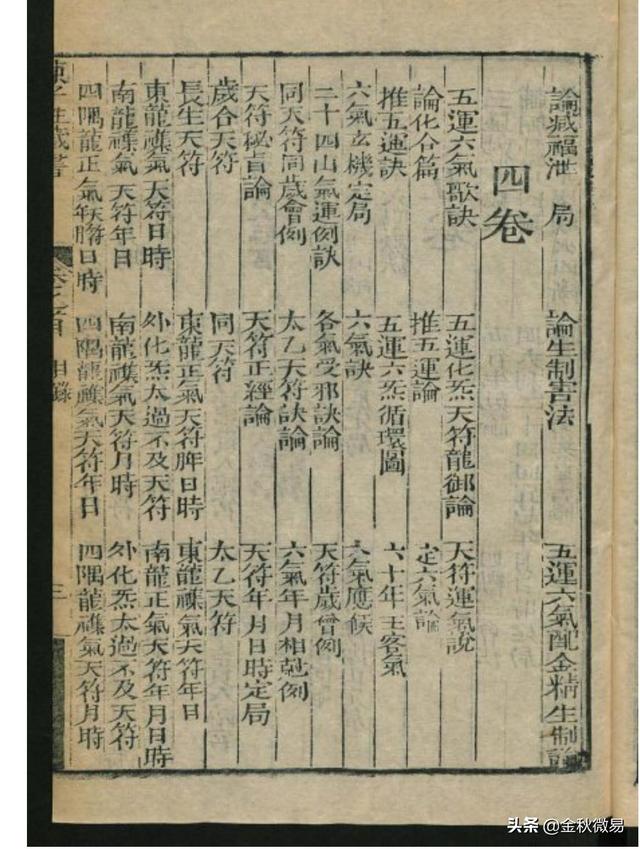 論臧福泄 局 論生制害法 五運六氣配金精生制論
四卷
五運六氣歌訣 五運化炁天符龍御論 天符運氣說
論化合篇 推五運論 定六氣論
推五運訣 五運六炁循環圖 六十年主客氣
六氣玄機定局 六氣訣 六氣應候
二十四山氣運例訣 各氣受邪訣論 天符歲會例
同天符同歲會例 太乙天符訣論 六氣年月相尅例
天符秘旨論 天符正經論 天符年月日時定局
歲合天符 同天符 太乙天符
長生天符 東龍正氣天符年日時 東龍襍氣天符年日
東龍襍氣天符日時 外化炁太過不及天符 南龍正氣天符年月日時
南龍襍氣天符年日 南龍襍氣天符月時 外化炁太過不及天符
四隅龍正氣天符日時 四隅龍襍氣天符年日 四隅龍襍氣天符月時
陳子性藏書 卷之首 目錄 三
头条 @金秋微易